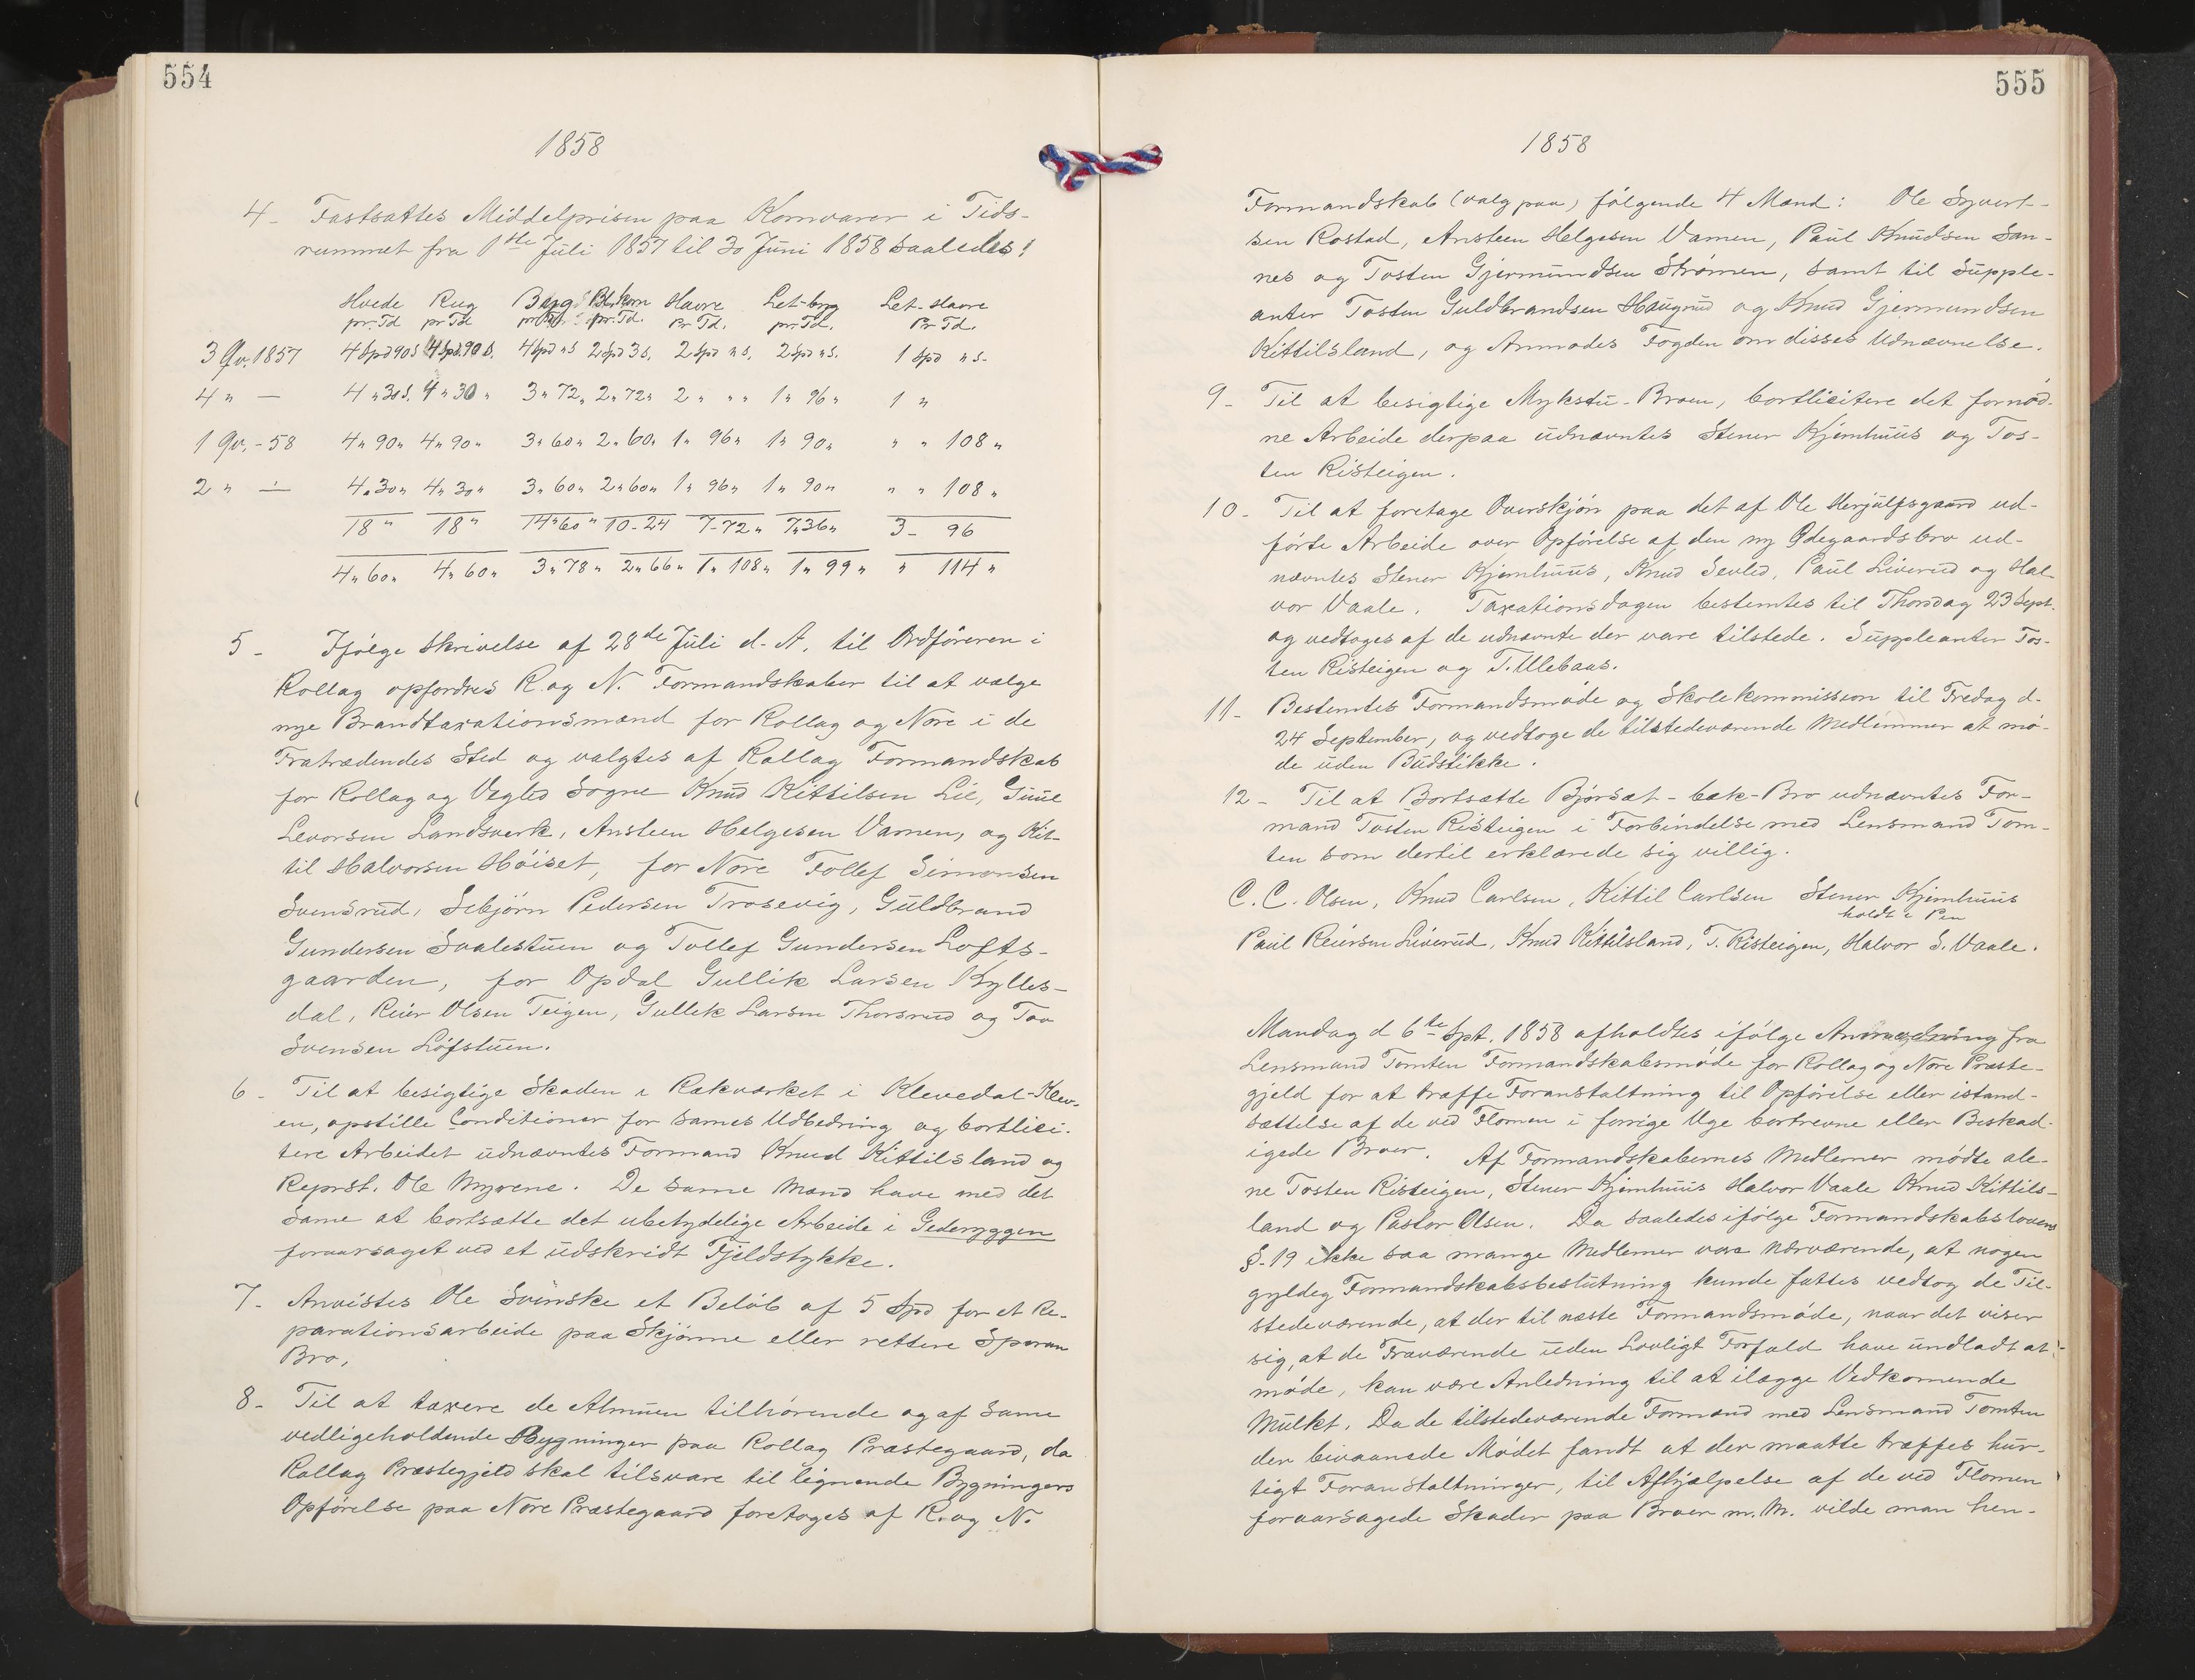 554
1858
4 - Fastsattes Middelprisen paa Kornvarer i Tids-
rummet fra 1ste Juli 1857 til 30 Juni 1858 saaledes:
Hvede Rug Byg Bl.korn Havre Let-byg Let-Havre
pr. Td pr Td pr. Td. Pr Td. pr. Td. Pr Td.
3 Qv. 1857 4 Spd 90 S 4 Spd. 90 S. 4 Spd " S 2 Spd 3 S. 2 Spd " S. 2 Spd " S. 1 Spd " S.
4 " — 4 " 30 S. 4 " 30 " 3 " 72 " 2 " 72 " 2 " " " 1 " 96 " 1 "
1 Qv. - 58 4 " 90 " 4 " 90 " 3 " 60 " 2 " 60 " 1 " 96 " 1 " 90 " " " 108 "
2 " — 4 " 30 " 4 " 30 " 3 " 60 " 2 " 60 " 1 " 96 " 1 " 90 " " " 108 "
18 " 18 " 14 " 60 " 10 - 24 7 - 72 " 7 " 36 " 3 - 96
4 " 60 " 4 " 60 " 3 " 78 " 2 " 66 " 1 " 108 " 1 " 99 " " 114 "
5 - Ifølge Skrivelse af 28de Juli d. A. til Ordføreren i
Rollag opfordres R. og N. Formandskaber til at vælge
nye Brandtaxationsmænd for Rollag og Nore i de
Fratrædendes Sted og valgtes af Rollag Formandskab
for Rollag og Vegled Sogne Knud Kittilsen Lie, Guul
Levorsen Landsverk, Ansteen Helgesen Vamen, og Kit-
til Halvorsen Höiset, for Nore Tollef Simonsen
Svensrud, Sebjörn Pedersen Trosevig, Guldbrand
Gundersen Svalestuen og Tollef Gundersen Lofts-
gaarden, for Opdal Gullik Larsen Kylles-
dal, Reier Olsen Teigen, Gullek Larsen Thorsrud og Tov
Svensen Löfstuen.
6 - Til at besigtige Skaden i Rækværket i Klevedal-Klev-
en, opstille Conditioner for sames Udbedring og bortlici-
tere Arbeidet udnævntes Formand Knud Kittilsland og
Reprst. Ole Myrene. De same Mænd have med det
same at bortsætte det ubetydelige Arbeide i Gederyggen
foraarsaget ved et udskridt Fjeldstykke.
7 - Anvistes Ole Svinske et Beløb af 5 Spd for et Re-
parationsarbeide paa Skjönne eller rettere Sporan
Bro.
8 - Til at taxere de Almuen tilhørende og af same
vedligeholdende Bygninger paa Rollag Præstegaard, da
Rollag Præstegjeld skal tilsvare til lignende Bygningers
Opførelse paa Nore Præstegaard foretoges af R. og N.
555
1858
Formandskab (valg paa) følgende 4 Mænd: Ole Syvert-
sen Rostad, Ansteen Helgesen Vamen, Paul Knudsen San-
nes og Tosten Gjermundsen Strömen, samt til Supple-
anter Tosten Guldbrandsen Haugrud og Knud Gjermundsen
Kittilsland, og Anmodes Fogden om disses Udnævnelse.
9 - Til at besigtige Mykstu-Broen, bortlicitere det fornød-
ne Arbeide derpaa udnævntes Stener Kjemhuus og Tos-
ten Risteigen.
10 - Til at foretage Overskjön paa det af Ole Herjulfsgaard ud-
førte Arbeide over Opførelse af den ny Ødegaardsbro ud-
nævntes Stener Kjemhuus, Knud Sevled, Paul Liverud og Hal-
vor Vaale. Taxationsdagen bestemtes til Thorsdag 23 Sept.
og vedtoges af de udnævnte der vare tilstede. Suppleanter Tos-
ten Risteigen og T. Ulebaas.
11 - Bestemtes Formandsmøde og Skolekommission til Fredag d.
24 September, og vedtoge de tilstedeværende Medlemmer at mø-
de uden Budstikke.
12 - Til at Bortsætte Björsæt-bæk-Bro udnævntes For-
mand Tosten Risteigen i Forbindelse med Lensmand Tom-
ten som dertil erklærede sig villig.
C. C. Olsen, Knud Carlsen, Kittil Carlsen Stener Kjemhuus
holdt i Pen
Paul Reiersen Liverud, Knud Kittilsland, T. Risteigen, Halvor S. Vaale.
Mandag d 6te Spt. 1858 afholdtes ifølge fra
Lensmand Tomten Formandskabsmøde for Rollag og Nore Præste-
gjeld for at træffe Foranstaltning til Opførelse eller istand-
sættelse af de ved Flomen i forrige Uge bortrevne eller Beskad-
igede Broer. Af Formandskabernes Medlemer mødte ale-
ne Tosten Risteigen, Stener Kjemhuus Halvor Vaale Knud Kittils-
land og Pastor Olsen. Da saaledes ifølge Formandskabslovens
§. 19 ikke saa mange Medlemer vare nærværende, at nogen
gyldig Formandskabsbeslutning kunde fattes vedtog de Til-
stedeværende, at der til næste Formandsmøde, naar det viser
sig, at de Fraværende uden Lovligt Forfald have undladt at
møde, kan være Anledning til at ilægge Vedkomende
Mulkt. Da de tilstedeværende Formænd med Lensmand Tomten
der bivaanede Mødet fandt at der maatte træffes hur-
tigt Foranstaltninger, til Afhjælpelse af de ved Flomen
foraarsagede Skader paa Broer m. M. vilde man hen-